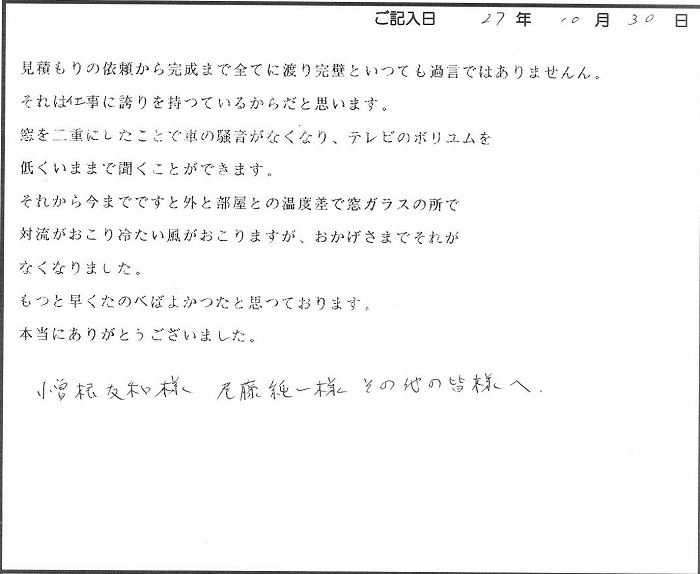 ご記入日 27年 10月 30日
見積もりの依頼から完成まで全てに渡り完壁といつても過言ではありませんん。
それは仕事に誇りを持つているからだと思います。
窓を二重にしたことで車の騒音がなくなり、テレビのボリユムを
低くいままで聞くことができます。
それから今まででですと外と部屋との温度差で窓ガラスの所で
対流がおこり冷たい風がおこりますが、おかげさまでそれが
なくなりました。
もつと早くたのべばよかつたと思つております。
本当にありがとうございました。
曽根友和様 尾藤純一様 その他の皆様へ.